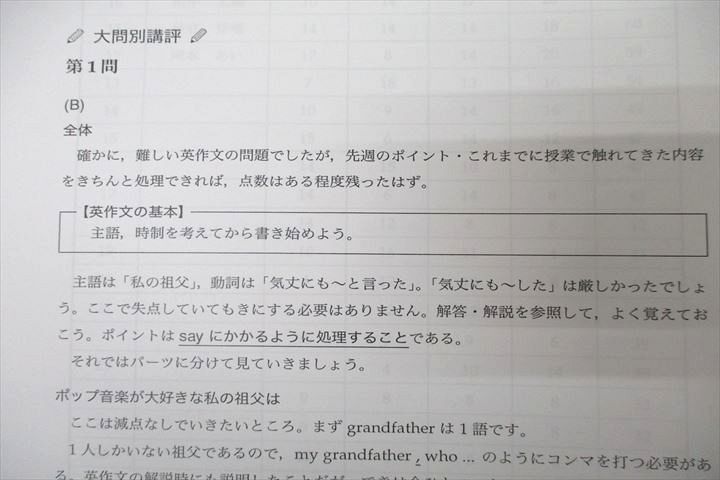 大問別講評
第1問
(B)
全体
確かに，難しい英作文の問題でしたが，先週のポイント・これまでに授業で触れてきた内容
をきちんと処理できれば，点数はある程度残ったはず。
【英作文の基本】
主語，時制を考えてから書き始めよう。
主語は「私の祖父」，動詞は「気丈にも〜と言った」。「気丈にも〜した」は厳しかったでしょ
う。ここで失点していてもきにする必要はありません。解答・解説を参照して，よく覚えてお
こう。ポイントは say にかかるように処理することである。
それではパーツに分けて見ていきましょう。
ポップ音楽が大好きな私の祖父は
ここは減点なしでいきたいところ。まず grandfather は1語です。
1人しかいない祖父であるので，my grandfather , who ... のようにコンマを打つ必要があ
る。英作文の解説時にも説明したことだが